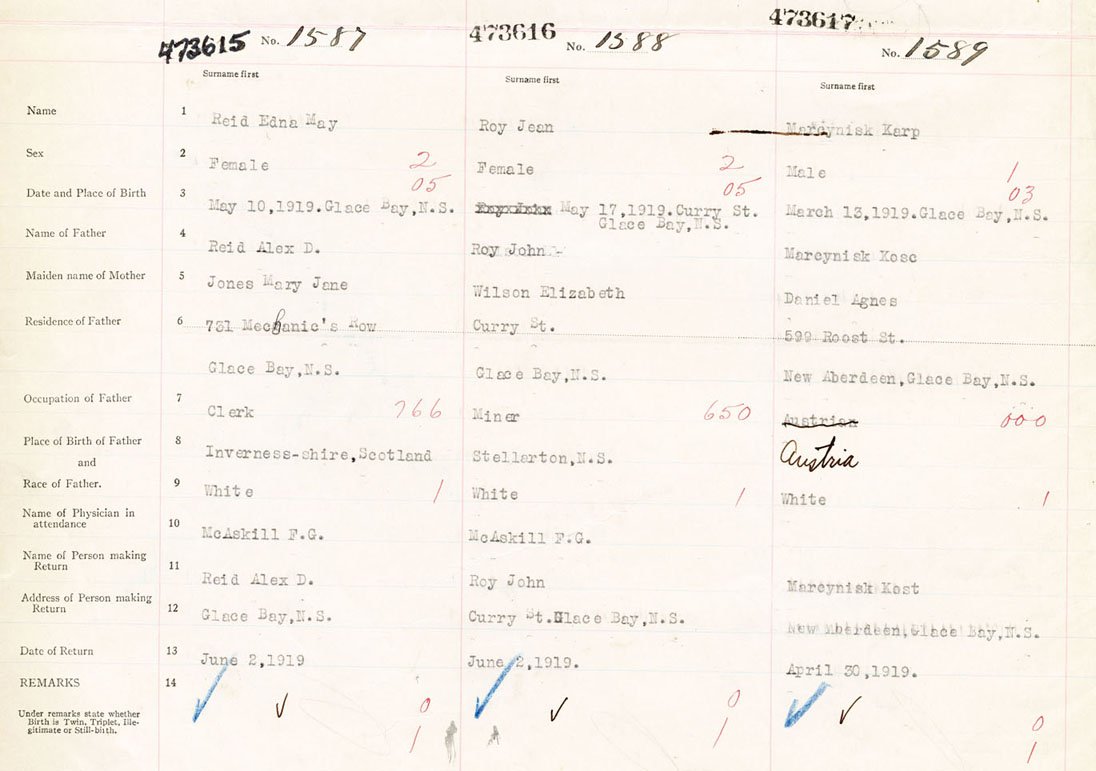 473615 No. 1587 473616 No. 1588 473617 No. 1589
Surname first Surname first Surname first
Name 1 Reid Edna May Roy Jean Marcynisk Karp
Sex 2 Female 2 Female 2 Male 1
05 05 03
Date and Place of Birth 3 May 10,1919.Glace Bay,N.S. May 17,1919.Curry St. March 13,1919.Glace Bay,N.S.
Glace Bay,N.S.
Name of Father 4 Reid Alex D. Roy John Marcynisk Kosc
Maiden name of Mother 5 Jones Mary Jane Wilson Elizabeth Daniel Agnes
Residence of Father 6 731 Mechanic's Row Curry St. 599 Roost St.
Glace Bay,N.S. Glace Bay,N.S. New Aberdeen,Glace Bay,N.S.
Occupation of Father 7 Clerk 766 Miner 650 Austrian 000
Place of Birth of Father 8 Inverness-shire,Scotland Stellarton,N.S. Austria
and
Race of Father. 9 White 1 White 1 White 1
Name of Physician in
attendance 10 McAskill F.G. McAskill F.G.
Name of Person making
Return 11 Reid Alex D. Roy John Marcynisk Kost
Address of Person making
Return 12 Glace Bay,N.S. Curry St.Glace Bay,N.S. New Aberdeen,Glace Bay,N.S.
Date of Return 13 June 2,1919 June 2,1919. April 30,1919.
REMARKS 14
0 0 0
Under remarks state whether
Birth is Twin, Triplet, Ille-
gitimate or Still-birth.
1 1 1